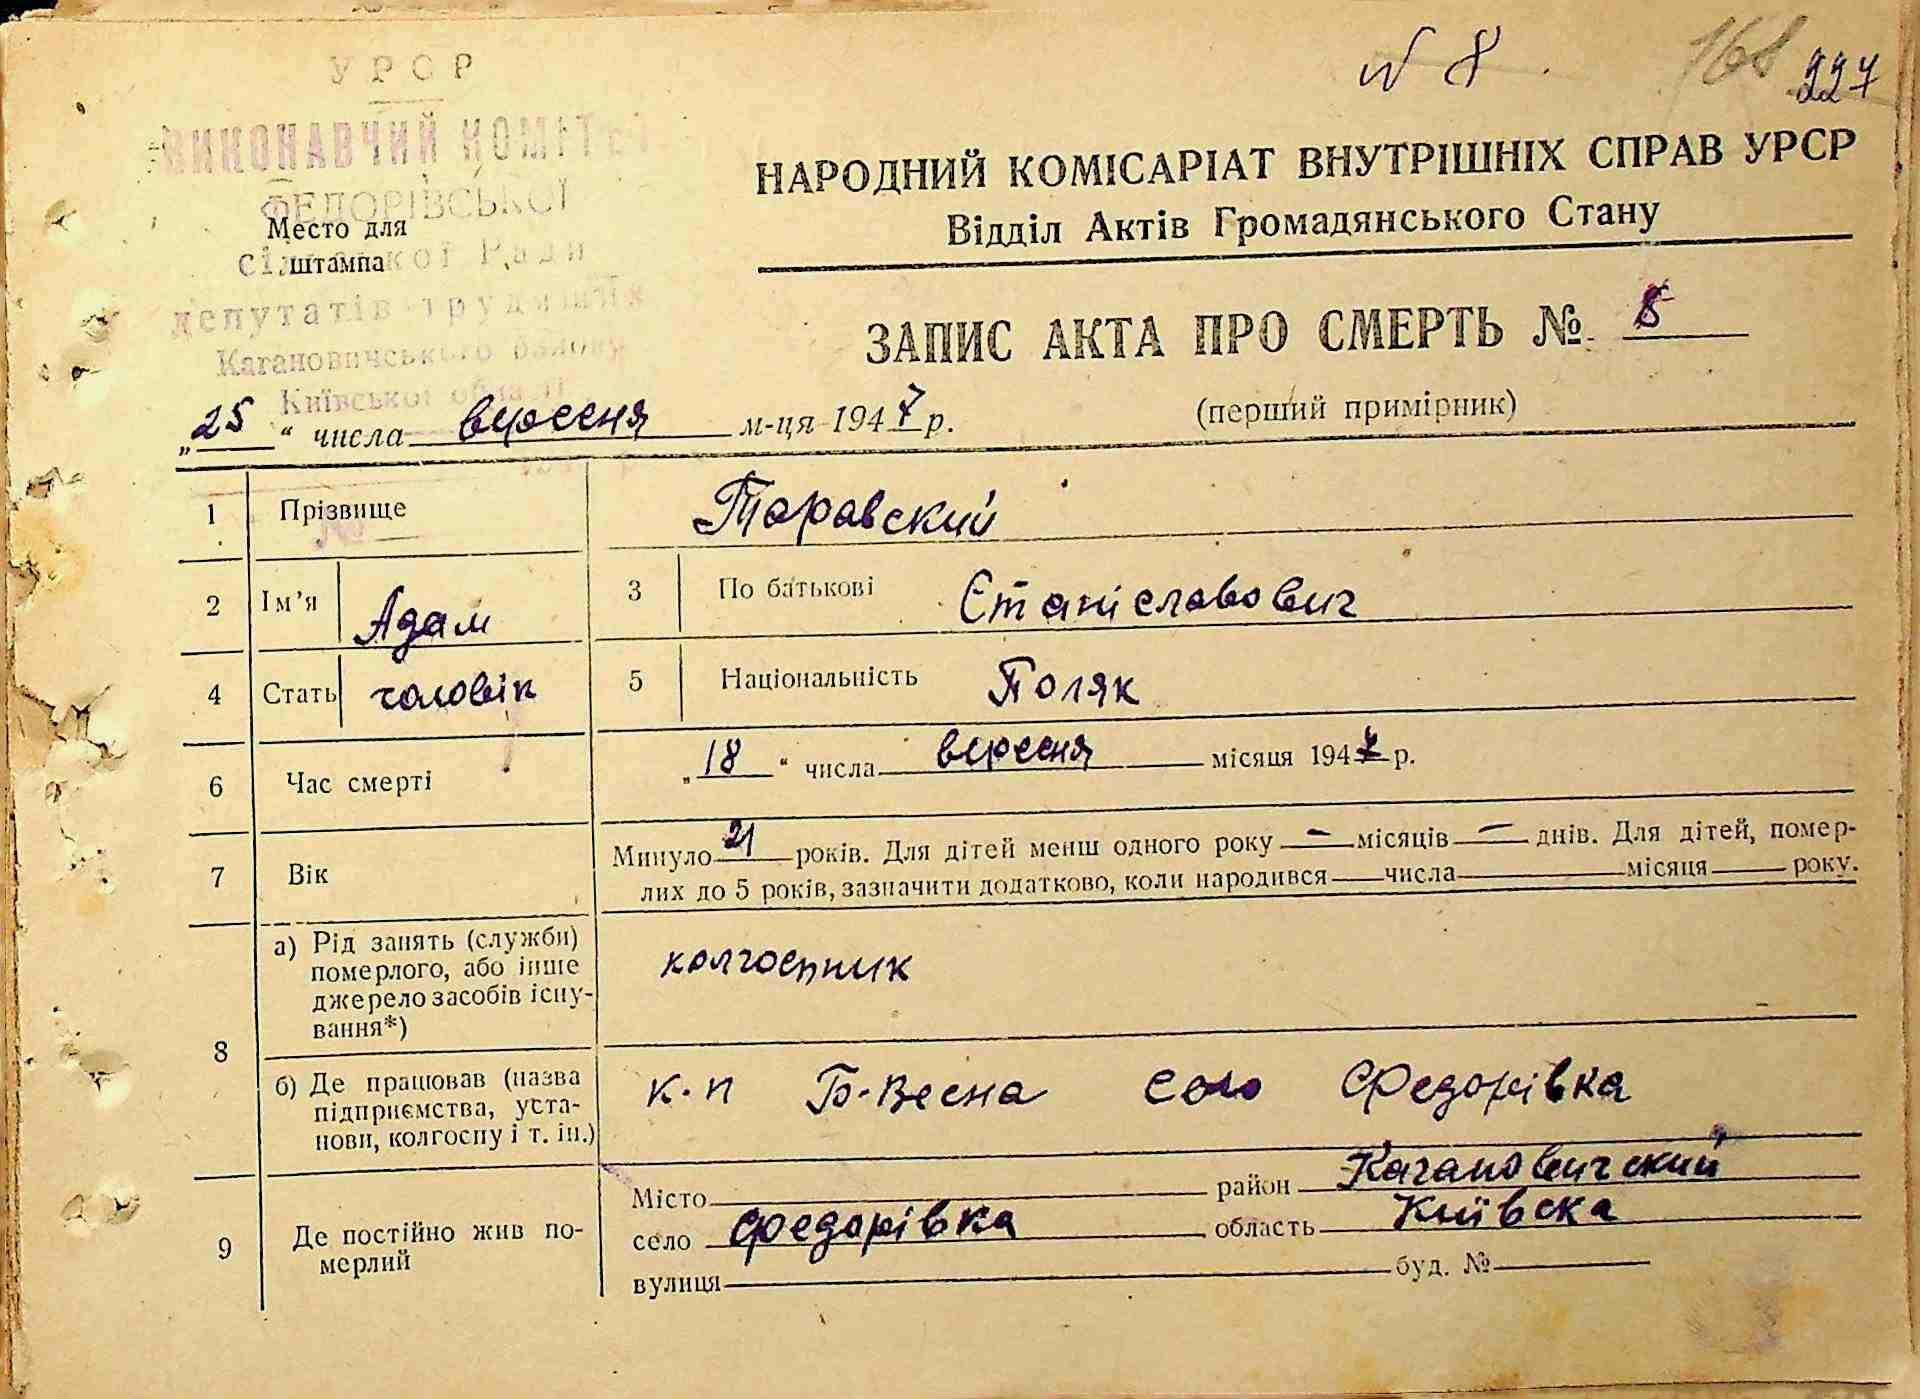 № 8
168 227
УРСР
ВИКОНАВЧИЙ КОМІТЕТ
ФЕДОРІВСЬКОЇ
сільської Ради
депутатів трудящих
Кагановичського району
Київської області
Место для
штампа
НАРОДНИЙ КОМІСАРІАТ ВНУТРІШНІХ СПРАВ УРСР
Відділ Актів Громадянського Стану
ЗАПИС АКТА ПРО СМЕРТЬ № 8
(перший примірник)
„25“ числа вересня м-ця 1947 р.
1 Прізвище Таравский
№
2 Ім'я Адам 3 По батькові Станіславович
4 Стать чоловік 5 Національність Поляк
6 Час смерті „18“ числа вересня місяця 1947 р.
7 Вік Минуло 21 років. Для дітей менш одного року — місяців — днів. Для дітей, помер-
лих до 5 років, зазначити додатково, коли народився числа місяця року.
8 а) Рід занять (служби)
померлого, або інше
джерело засобів існу-
вання*)
колгоспник
б) Де працював (назва
підприємства, уста-
нови, колгоспу і т. ін.)
к-п Б-Весна село Федорівка
9 Де постійно жив по-
мерлий
Місто район Кагановичский
село Федорівка область Київска
вулиця буд. №